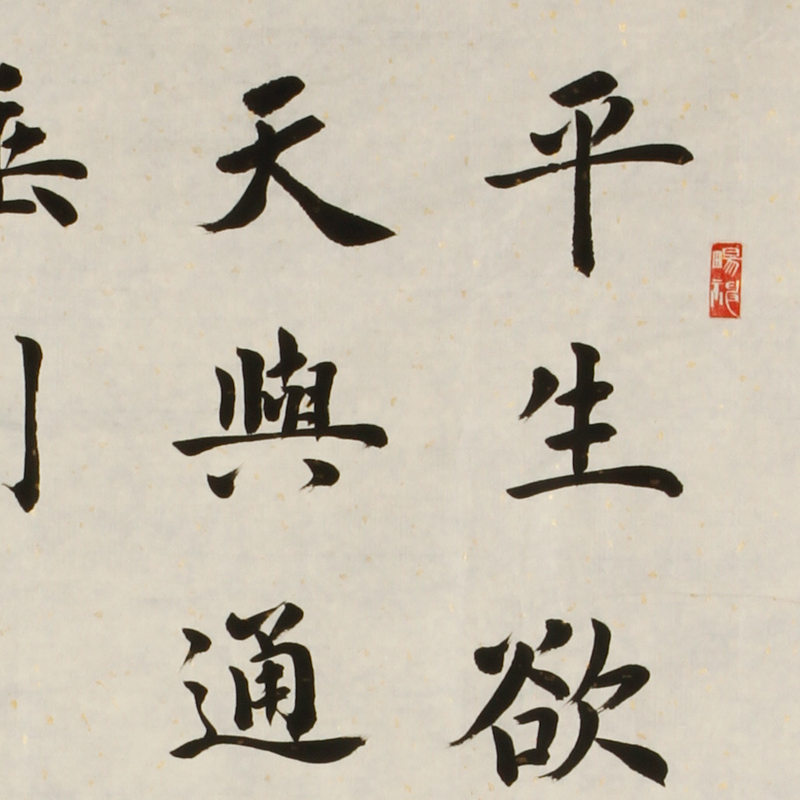 平生欲
天與通